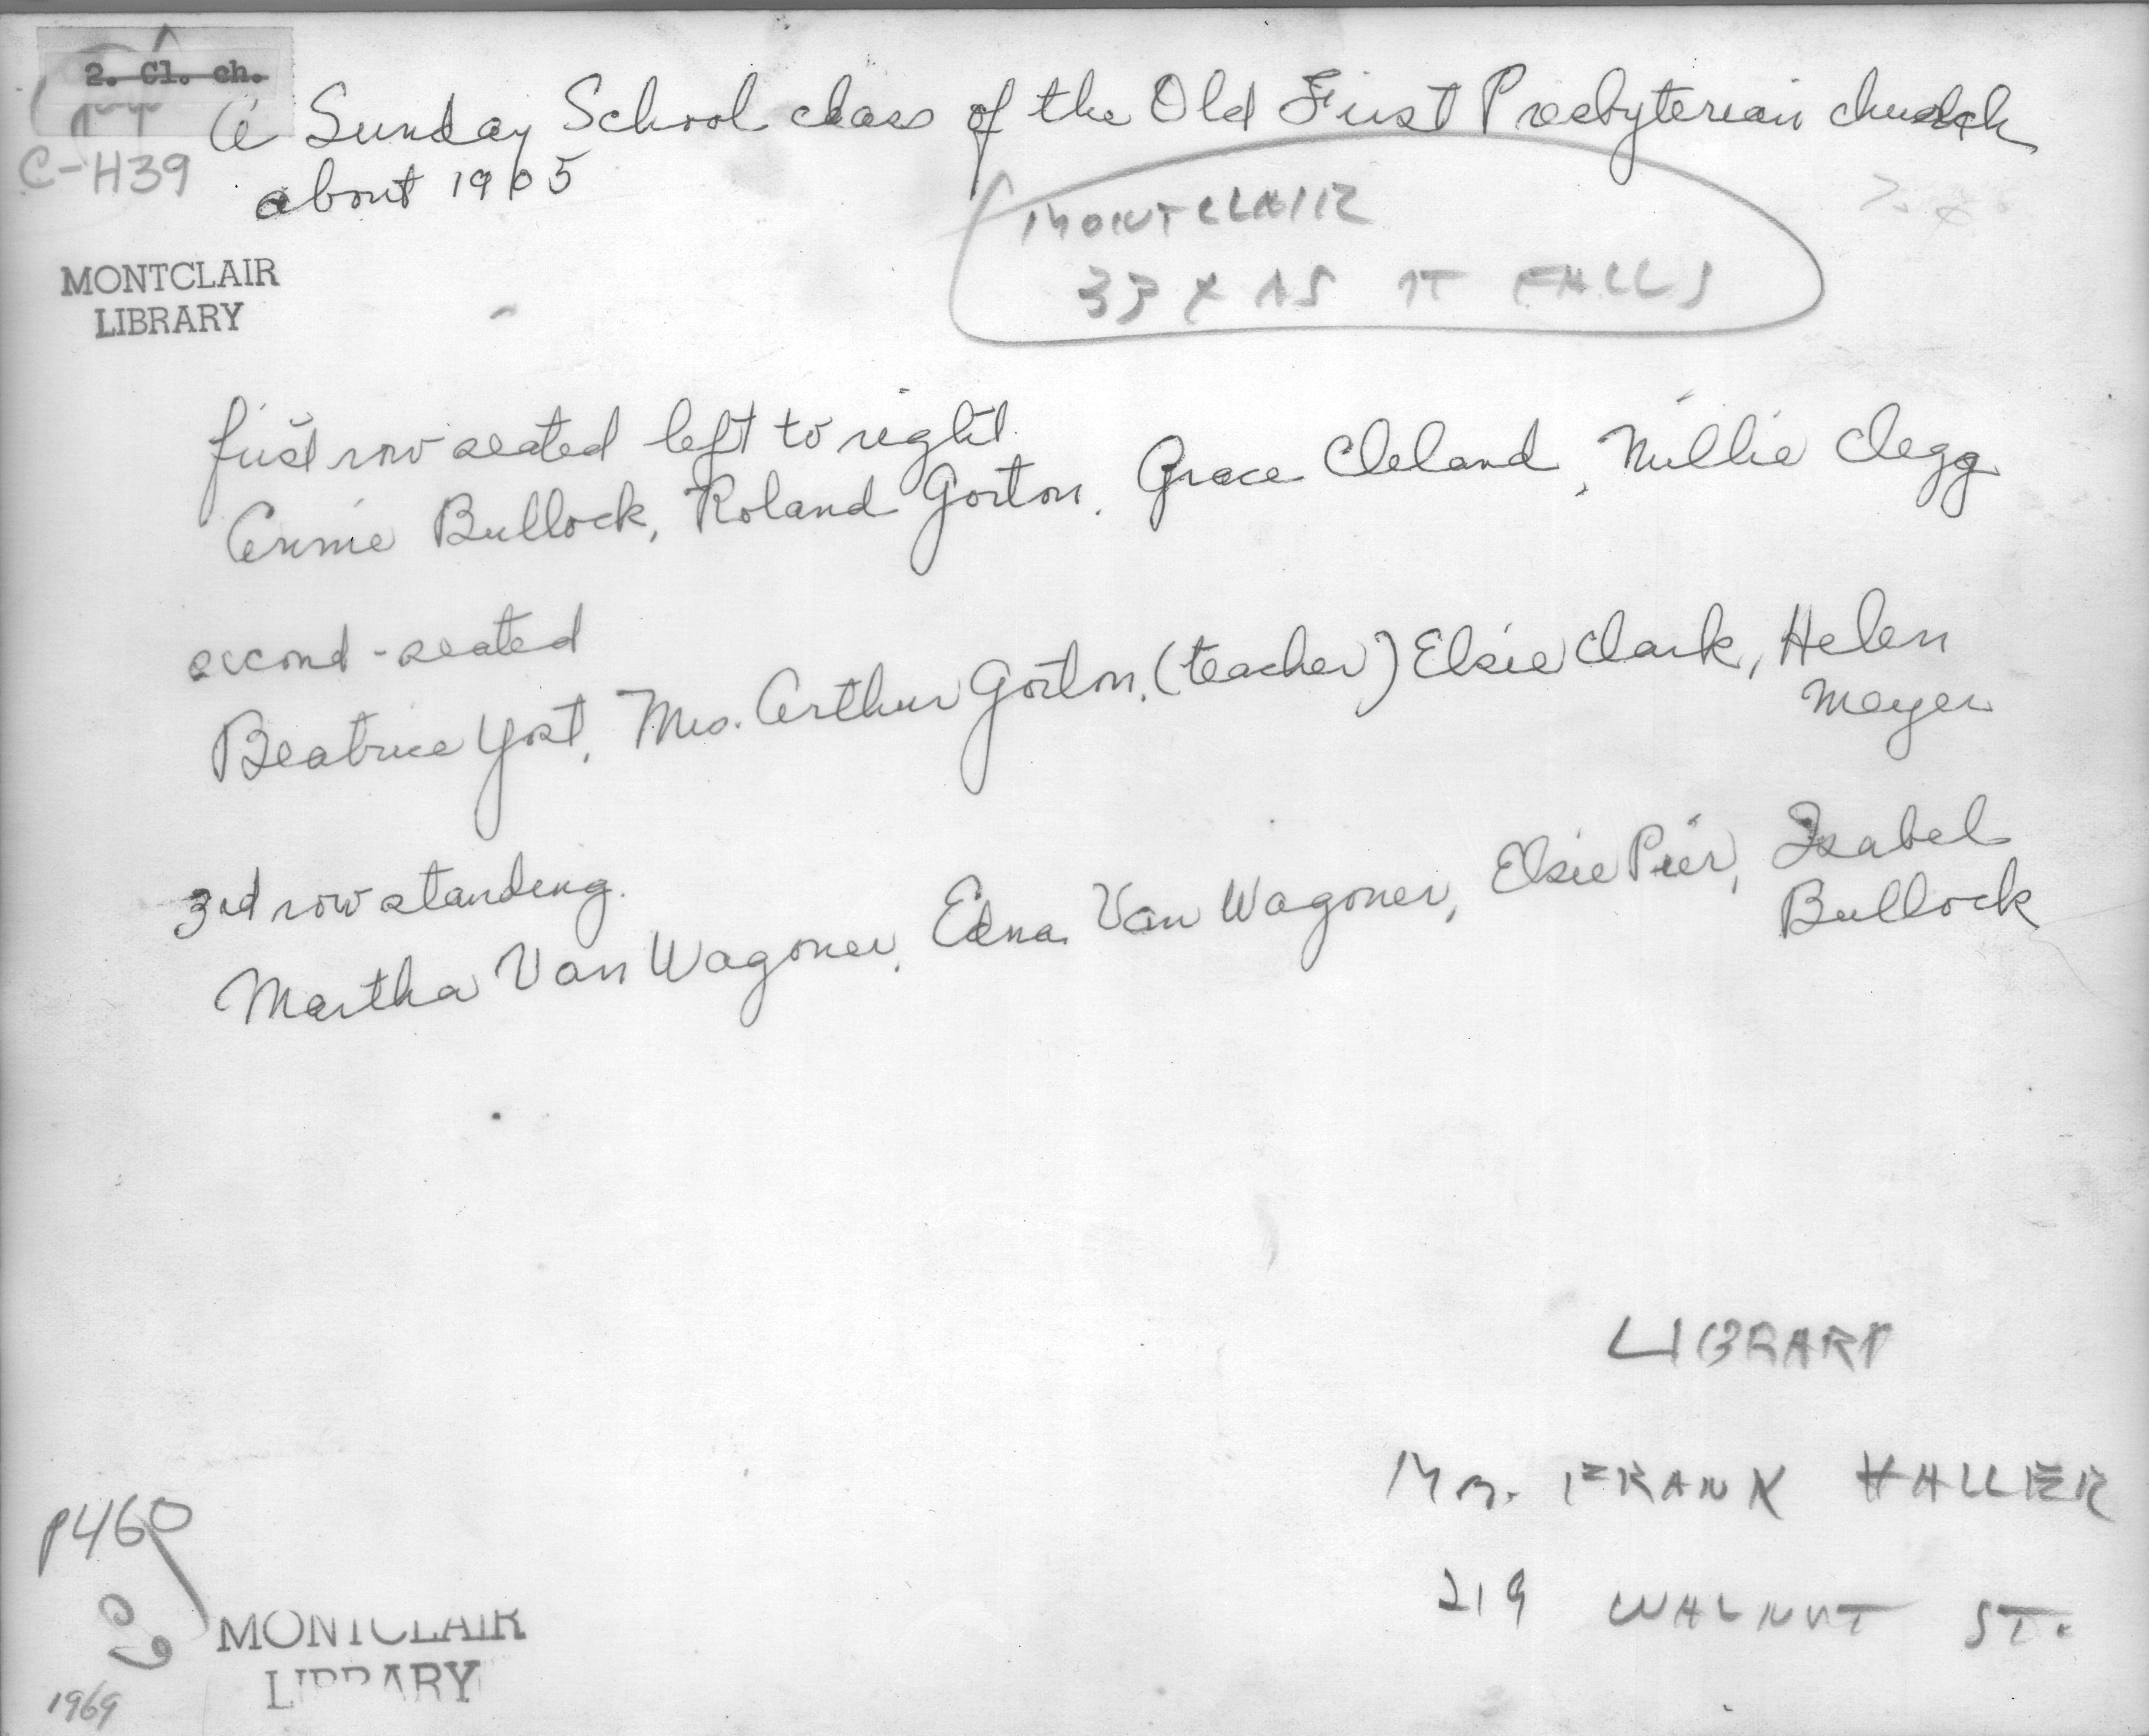 2. Cl. ch.
A Sunday School class of the Old First Presbyterian church
C-H39
about 1905
MONTCLAIR
33 X AS IT FALLS
MONTCLAIR
LIBRARY
first row seated left to right.
Annie Bullock, Roland Gorton, Grace Cleland, Millie Clegg
second - seated
Beatrice Yost, Mrs. Arthur Gorton, (teacher) Elsie Clark, Helen
Meyer
3rd row standing.
Martha Van Wagoner, Edna Van Wagoner, Elsie Pier, Isabel
Bullock
LIBRARY
Mr. FRANK
219 WALNUT ST.
P460
MONTCLAIR
LIBRARY
1969